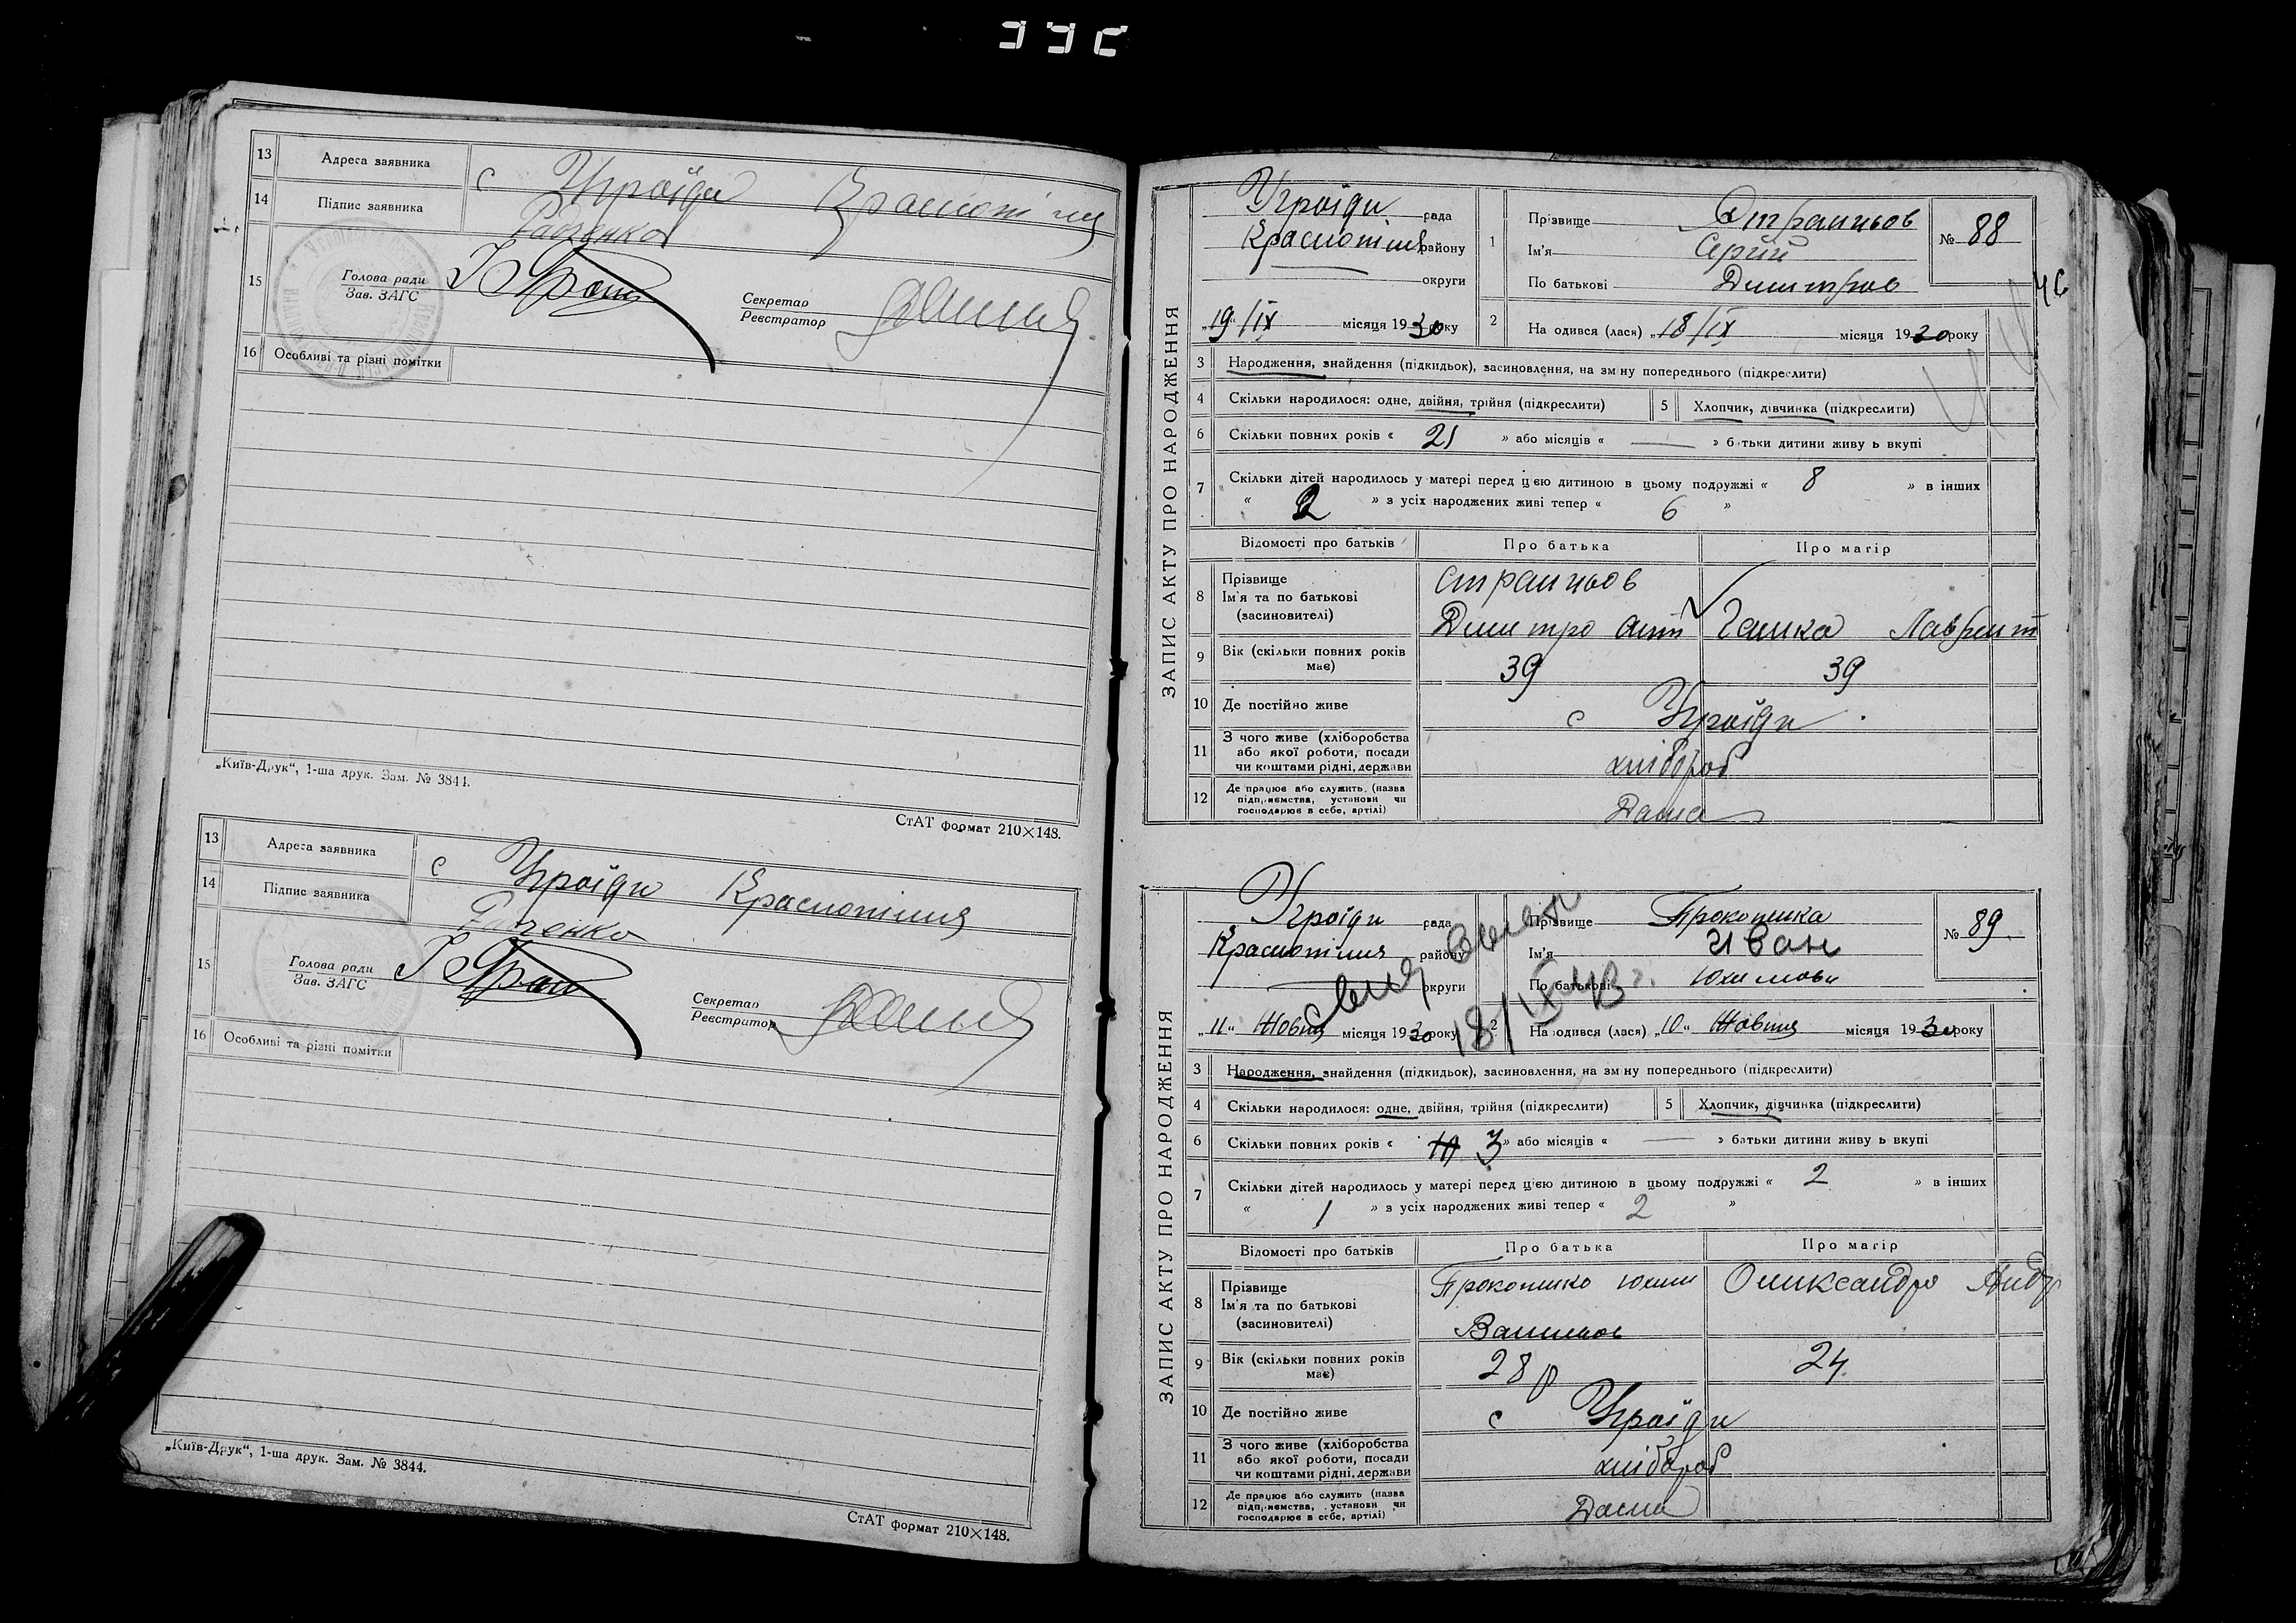 13 Адреса заявника с Угроїди Краснопілля
14 Підпис заявника Радченко
15 Голова ради
Зав. ЗАГС
Секретар
Реєстратор
16 Особливі та різні помітки
„Київ-Друк“, 1-ша друк. Зам. № 3844.
СтАТ формат 210×148.
13 Адреса заявника с Угроїди Краснопілля
14 Підпис заявника Радченко
15 Голова ради
Зав. ЗАГС
Секретар
Реєстратор
16 Особливі та різні помітки
„Київ-Друк“, 1-ша друк. Зам. № 3844.
СтАТ формат 210×148.
ЗАПИС АКТУ ПРО НАРОДЖЕННЯ
Угроїди рада
Краснопілля району
округи
„19“/IX місяця 1930 року
1 Прізвище
Ім'я Сергій
По батькові Дмитров
№ 88
46
2 На одився (лася) „18/IX місяця 1930 року
3 Народження, знайдення (підкидьок), засиновлення, на зм ну попереднього (підкреслити)
4 Скільки народилося: одне, двійня, трійня (підкреслити) 5 Хлопчик, дівчинка (підкреслити)
6 Скільки повних років « 21 » або місяців « — » б тьки дитини живу ь вкупі
7 Скільки дітей народилось у матері перед цією дитиною в цьому подружжі « 8 » в інших
« 2 » з усіх народжених живі тепер « 6 »
Відомості про батьків Про батька Про матір
8 Прізвище
Ім'я та по батькові
(засновителі)
Дмитро Ант Галька Лаврент
9 Вік (скільки повних років має) 39 39
10 Де постійно живе с Угроїди
11 З чого живе (хліборобства або якої роботи, посади чи коштами рідні, держави хлібороб
12 Де працює або служить (назва підприємства, установи чи господарює в себе, артілі) Дома
ЗАПИС АКТУ ПРО НАРОДЖЕННЯ
Угроїди рада
Краснопілля району
округи
„11“ Жовтня місяця 1930 року
18/IX 43 г.
Прізвище Прокопенка
Ім'я Иван
По батькові Юхимови
№ 89
2 На одився (лася) „10“ Жовтня місяця 1930 року
3 Народження, знайдення (підкидьок), засиновлення, на зм ну попереднього (підкреслити)
4 Скільки народилося: одне, двійня, трійня (підкреслити) 5 Хлопчик, дівчинка (підкреслити)
6 Скільки повних років « 3 » або місяців « — » батьки дитини живу ь вкупі
7 Скільки дітей народилось у матері перед цією дитиною в цьому подружжі « 2 » в інших
« 1 » з усіх народжених живі тепер « 2 »
Відомості про батьків Про батька Про матір
8 Прізвище
Ім'я та по батькові
(засновителі)
Прокопенко Юхим Олександра Андр
Васильов
9 Вік (скільки повних років має) 28 р 24
10 Де постійно живе с Угроїди
11 З чого живе (хліборобства або якої роботи, посади чи коштами рідні, держави хлібороб
12 Де працює або служить (назва підприємства, установи чи господарює в себе, артілі) Дома